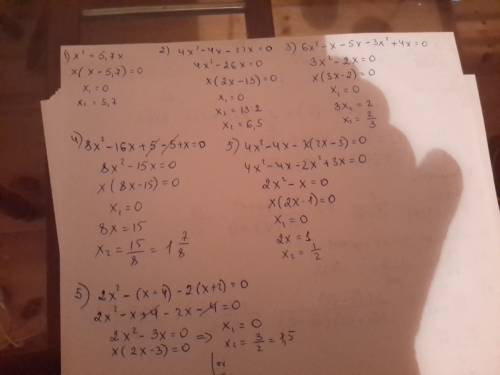 1) x² = 5,7x
x(x-5,7)=0
x₁=0
x₂=5,7
2) 4x²-4x-22x=0
4x²-26x=0
x(2x-13)=0
x₁=0
x₂=13:2
x₂=6,5
3) 6x²-x-5x-3x²+4x=0
3x²-2x=0
x(3x-2)=0
x₁=0
3x₂=2
x₂=2/3
4) 8x²-16x+5-5+x=0
8x²-15x=0
x(8x-15)=0
x₁=0
8x=15
x₂=15/8=1 7/8
5) 4x²-4x-x(2x-3)=0
4x²-4x-2x²+3x=0
2x²-x=0
x(2x-1)=0
x₁=0
2x=1
x₂=1/2
5) 2x²-(x-4)-2(x+2)=0
2x²-x+4-2x-4=0
2x²-3x=0 =>
x(2x-3)=0
x₁=0
x₂=3/2=1,5